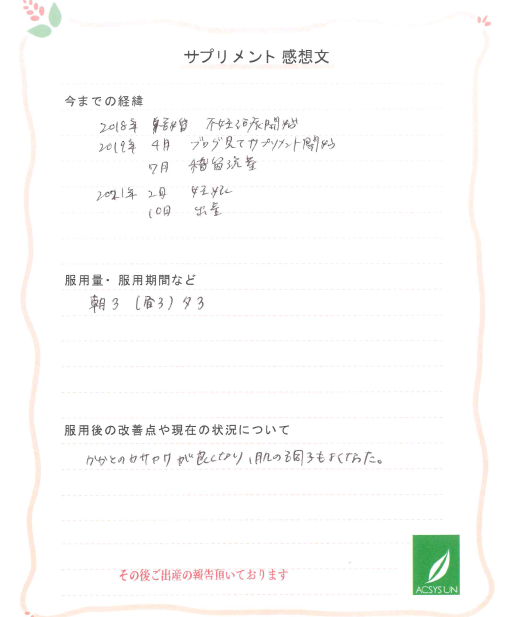 サプリメント 感想文
今までの経緯
2018年 結婚 不妊治療開始
2019年 4月 ブログ見てサプリメント開始
7月 稽留流産
2021年 2月 妊娠
10月 出産
服用量・服用期間など
朝3 (昼3) 夕3
服用後の改善点や現在の状況について
かかとのカサカサが良くなり、肌の調子もよくなった。
その後ご出産の報告頂いております
ACSYSUN